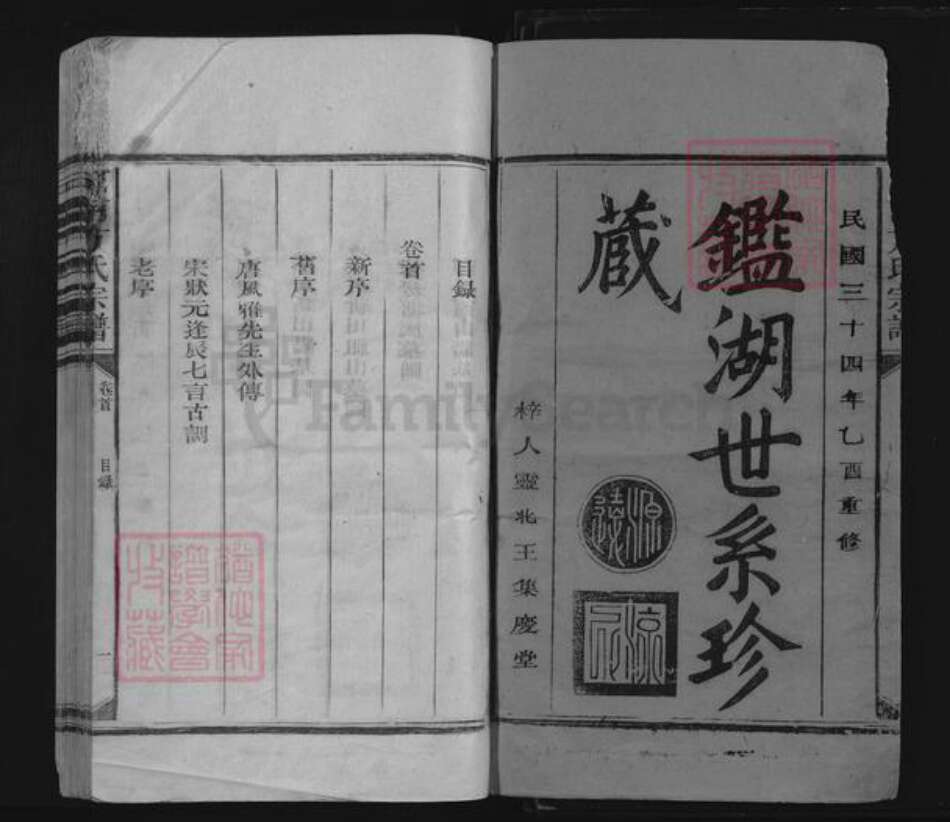 民國三十四年乙酉重修
鑑湖世系珍
藏
源遠
梓人靈北王集慶堂
目錄
卷首
新序
舊序
唐風雅先生外傳
宋狀元逢辰七言古詞
老序
方氏宗譜
卷首
目錄
一
譜學會
收藏
FamilySearch